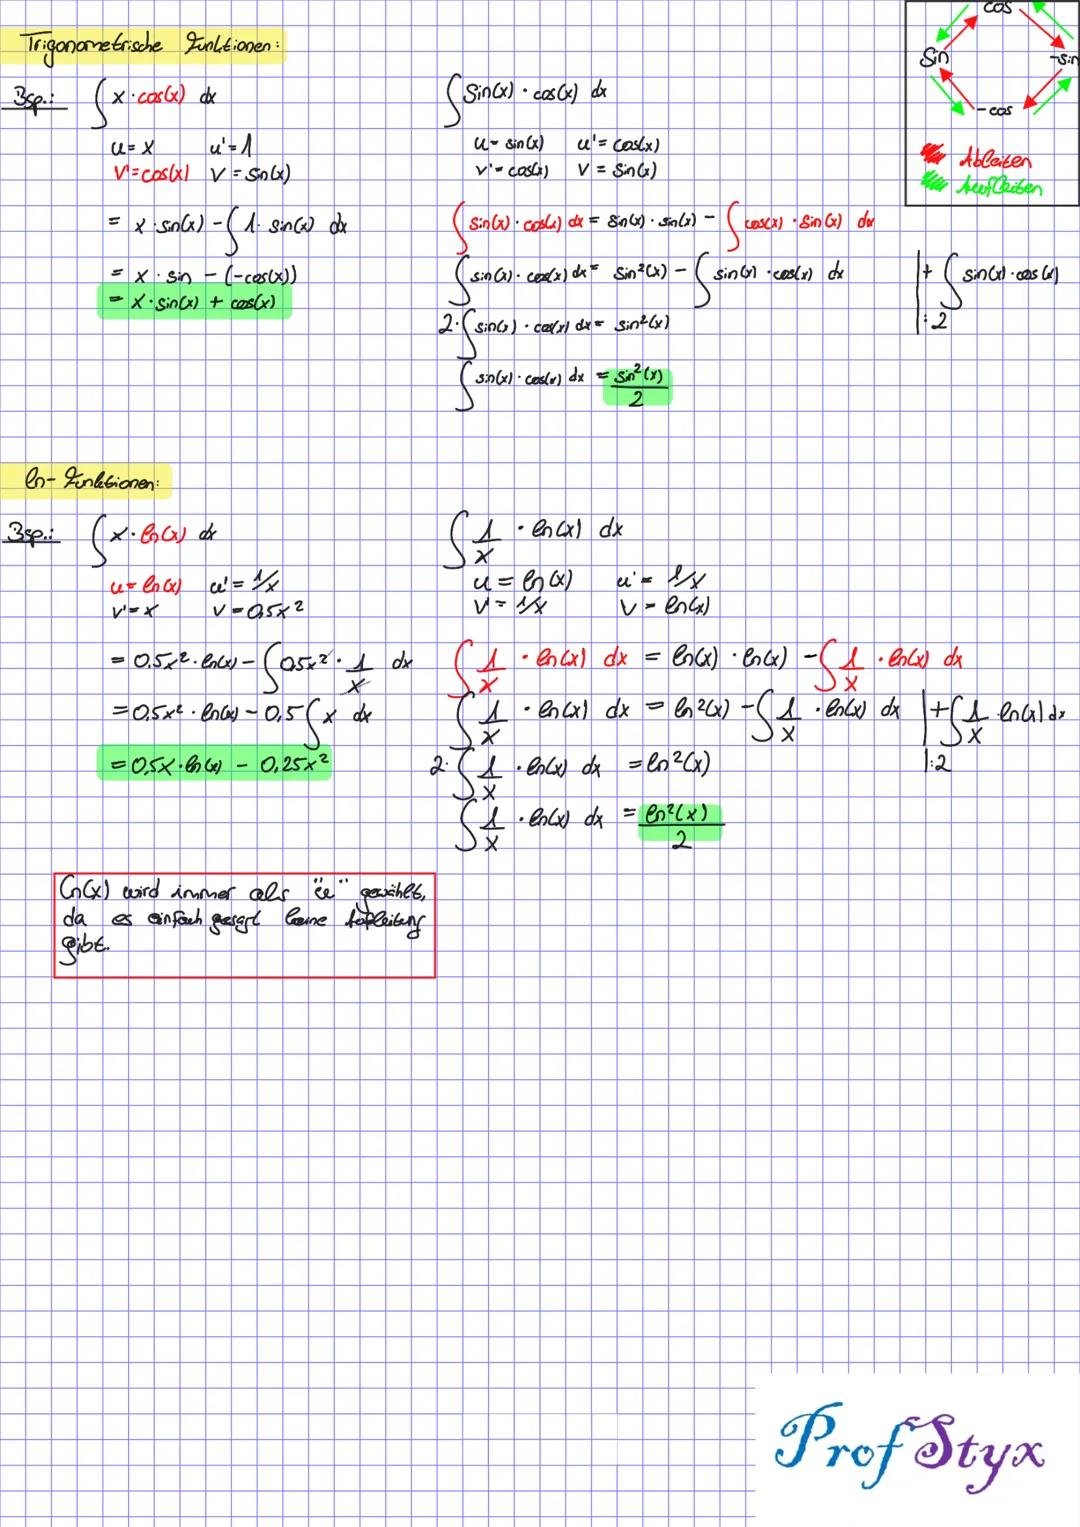 Trigonometrische Funktionen:
Bsp.: ∫ x · cos(x) dx
u = x u' = 1
v' = cos(x) v = sin(x)
= x · sin(x) - ∫ 1 · sin(x) dx
= x · sin - (-cos(x))
= x · sin(x) + cos(x)
∫ sin(x) · cos(x) dx
u = sin(x) u' = cos(x)
v' = cos(x) v = sin(x)
∫ sin(x) · cos(x) dx = sin(x) · sin(x) - ∫ cos(x) · sin(x) dx
∫ sin(x) · cos(x) dx = sin²(x) - ∫ sin(x) · cos(x) dx |+ ∫ sin(x) · cos(x)
2·∫ sin(x) · cos(x) dx = sin²(x) |:2
∫ sin(x) · cos(x) dx = sin²(x)/2
cos
Sin -sin
-cos
Ableiten
Aufleiten
ln-Funktionen:
Bsp.: ∫ x · ln(x) dx
u = ln(x) u' = 1/x
v' = x v = 0,5x²
= 0,5x² · ln(x) - ∫ 0,5x² · 1/x dx
= 0,5x² · ln(x) - 0,5 ∫ x dx
= 0,5x · ln(x) - 0,25x²
∫ 1/x · ln(x) dx
u = ln(x) u' = 1/x
v' = 1/x v = ln(x)
∫ 1/x · ln(x) dx = ln(x) · ln(x) - ∫ 1/x · ln(x) dx
∫ 1/x · ln(x) dx = ln²(x) - ∫ 1/x · ln(x) dx |+∫ 1/x · ln(x) dx
2·∫ 1/x · ln(x) dx = ln²(x) |:2
∫ 1/x · ln(x) dx = ln²(x)/2
ln(x) wird immer als "u" gewählt,
da es einfach gesagt keine Aufleitung
gibt.
Prof Styx